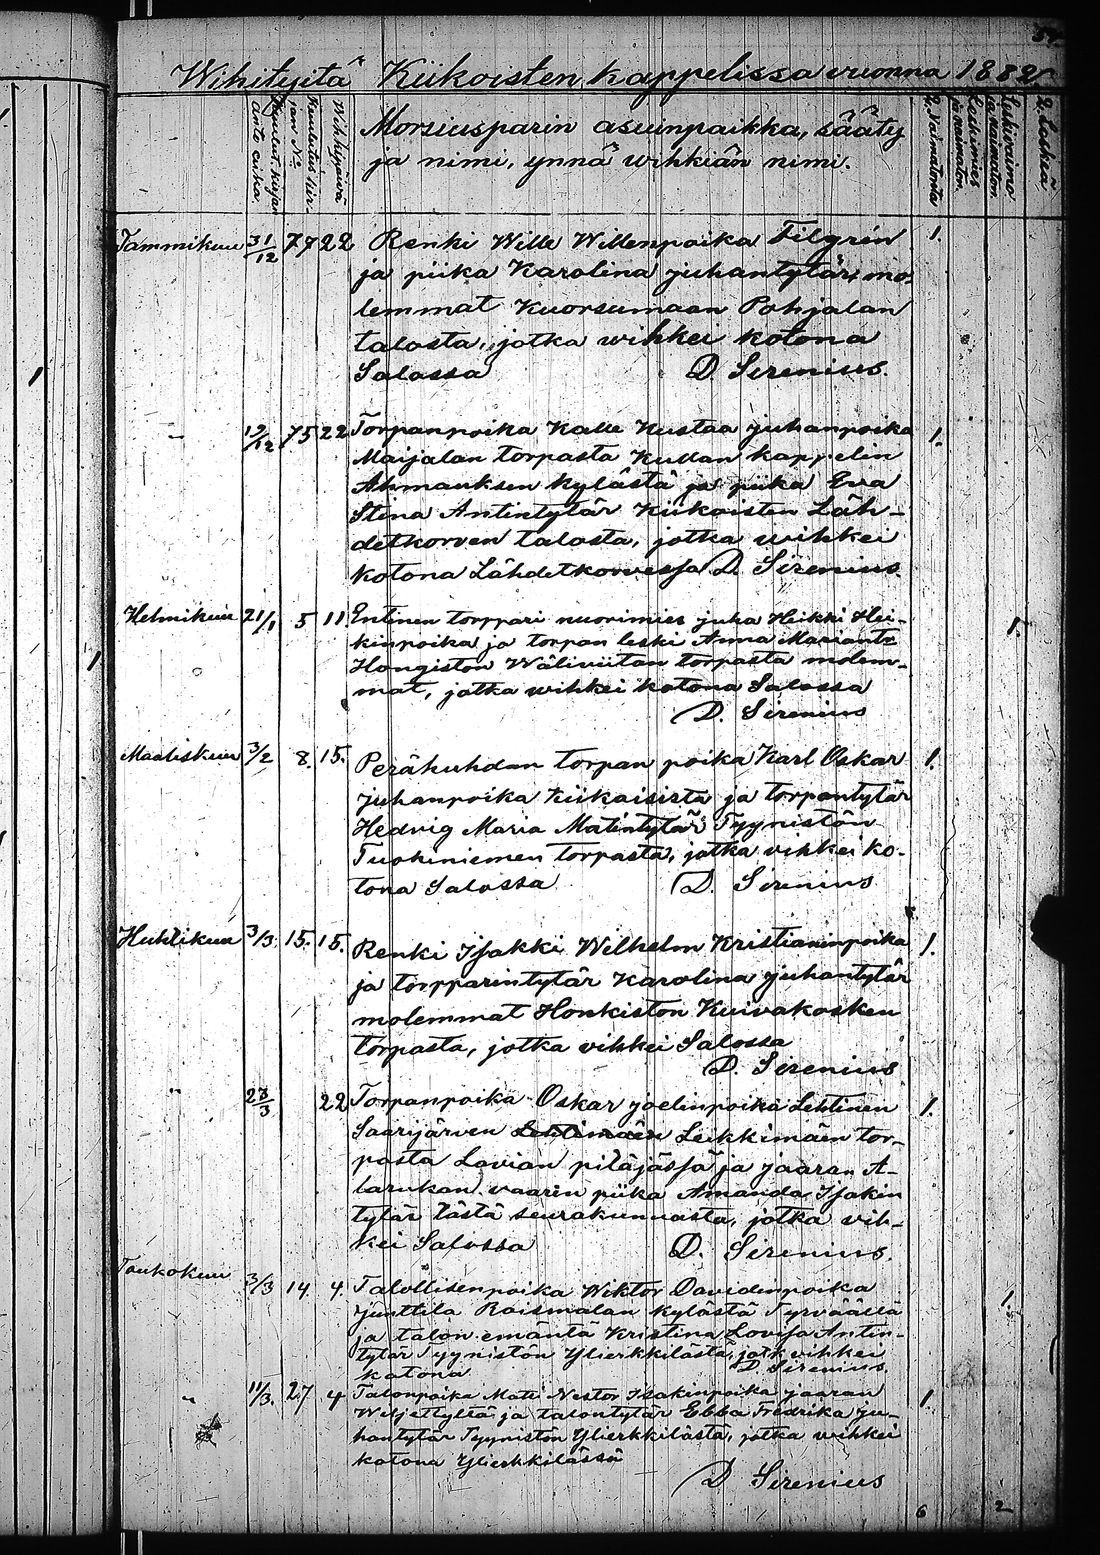 Wihityitä Kiikoisten kappelissa vuonna 1882.
Wihkipäivä
Morsiusparin asuinpaikka, sääty
ja nimi, ynnä wihkiän nimi.
2. Naimatonta
Leskimies ja naimaton.
Leskivaimo ja naimaton.
2. Leskeä
Tammikuu 31/12 77 22 Renki Wille Willenpoika Filgrén 1.
ja piika Karolina Juhantytär, mo-
lemmat Kuorsumaan Pohjalan
talosta, jotka wihkei kotona
Salossa D. Sirenius.
" 19/12 75 22 Torpanpoika Kalle Kustaa Juhanpoika 1.
Maijalan torpasta Kullan kappelin
Ahmauksen kylästä ja piika Eva
Stina Antintytär Kiikoisten Läh-
detkorven talosta, jotka wihkei
kotona Lähdetkorvessa D. Sirenius.
Helmikuu 21/1 5 11 Entinen torppari nuorimies Juha Heikki Hei- 1.
kinpoika ja torpan leski Anna
Hongiston Wäliviitan torpasta molem-
mat, jotka wihkei kotona Salossa
D. Sirenius
Maaliskuu 3/2 8. 15. Peräkuhdan torpan poika Karl Oskar 1.
Juhanpoika Kiikaisista ja torpantytär
Hedvig Maria Matintytär Tyynistön
Tuohiniemen torpasta, jotka vihkei ko-
tona Salossa D. Sirenius
Huhtikuu 3/3 15. 15. Renki Isakki Wilhelm Kristianinpoika 1.
ja torpparintytär Karolina Juhantytär
molemmat Honkiston Kuivakosken
torpasta, jotka vihkei Salossa
D. Sirenius
" 22 Torpanpoika Oskar Joelinpoika Lehtinen 1.
Saarijärven Leikkimäen tor-
pasta Lavian pitäjässä ja Jaaran A-
larukan vaarin piika Amanda Isakin
tytär tästä seurakunnasta, jotka vih-
kei Salossa D. Sirenius.
Toukokuu 3/3 14. 4. Talollisenpoika Wiktor Davidinpoika 1.
Junttila Roismalan kylästä Tyrväästä
ja talon emäntä Kristina Lovisa Antin-
tytär Tyynistön Ylierkkilästä, jotk vihkei
kotona D. Sirenius
" 11/3. 27 4 Talonpoika Mats Nestor Isakinpoika Jaaran 1.
ja talontytär Ebba Fredrika Ju-
hantytär Tyynistön Ylierkkilästä, jotka wihkei
kotona Ylierkkilässä
D. Sirenius
6 2